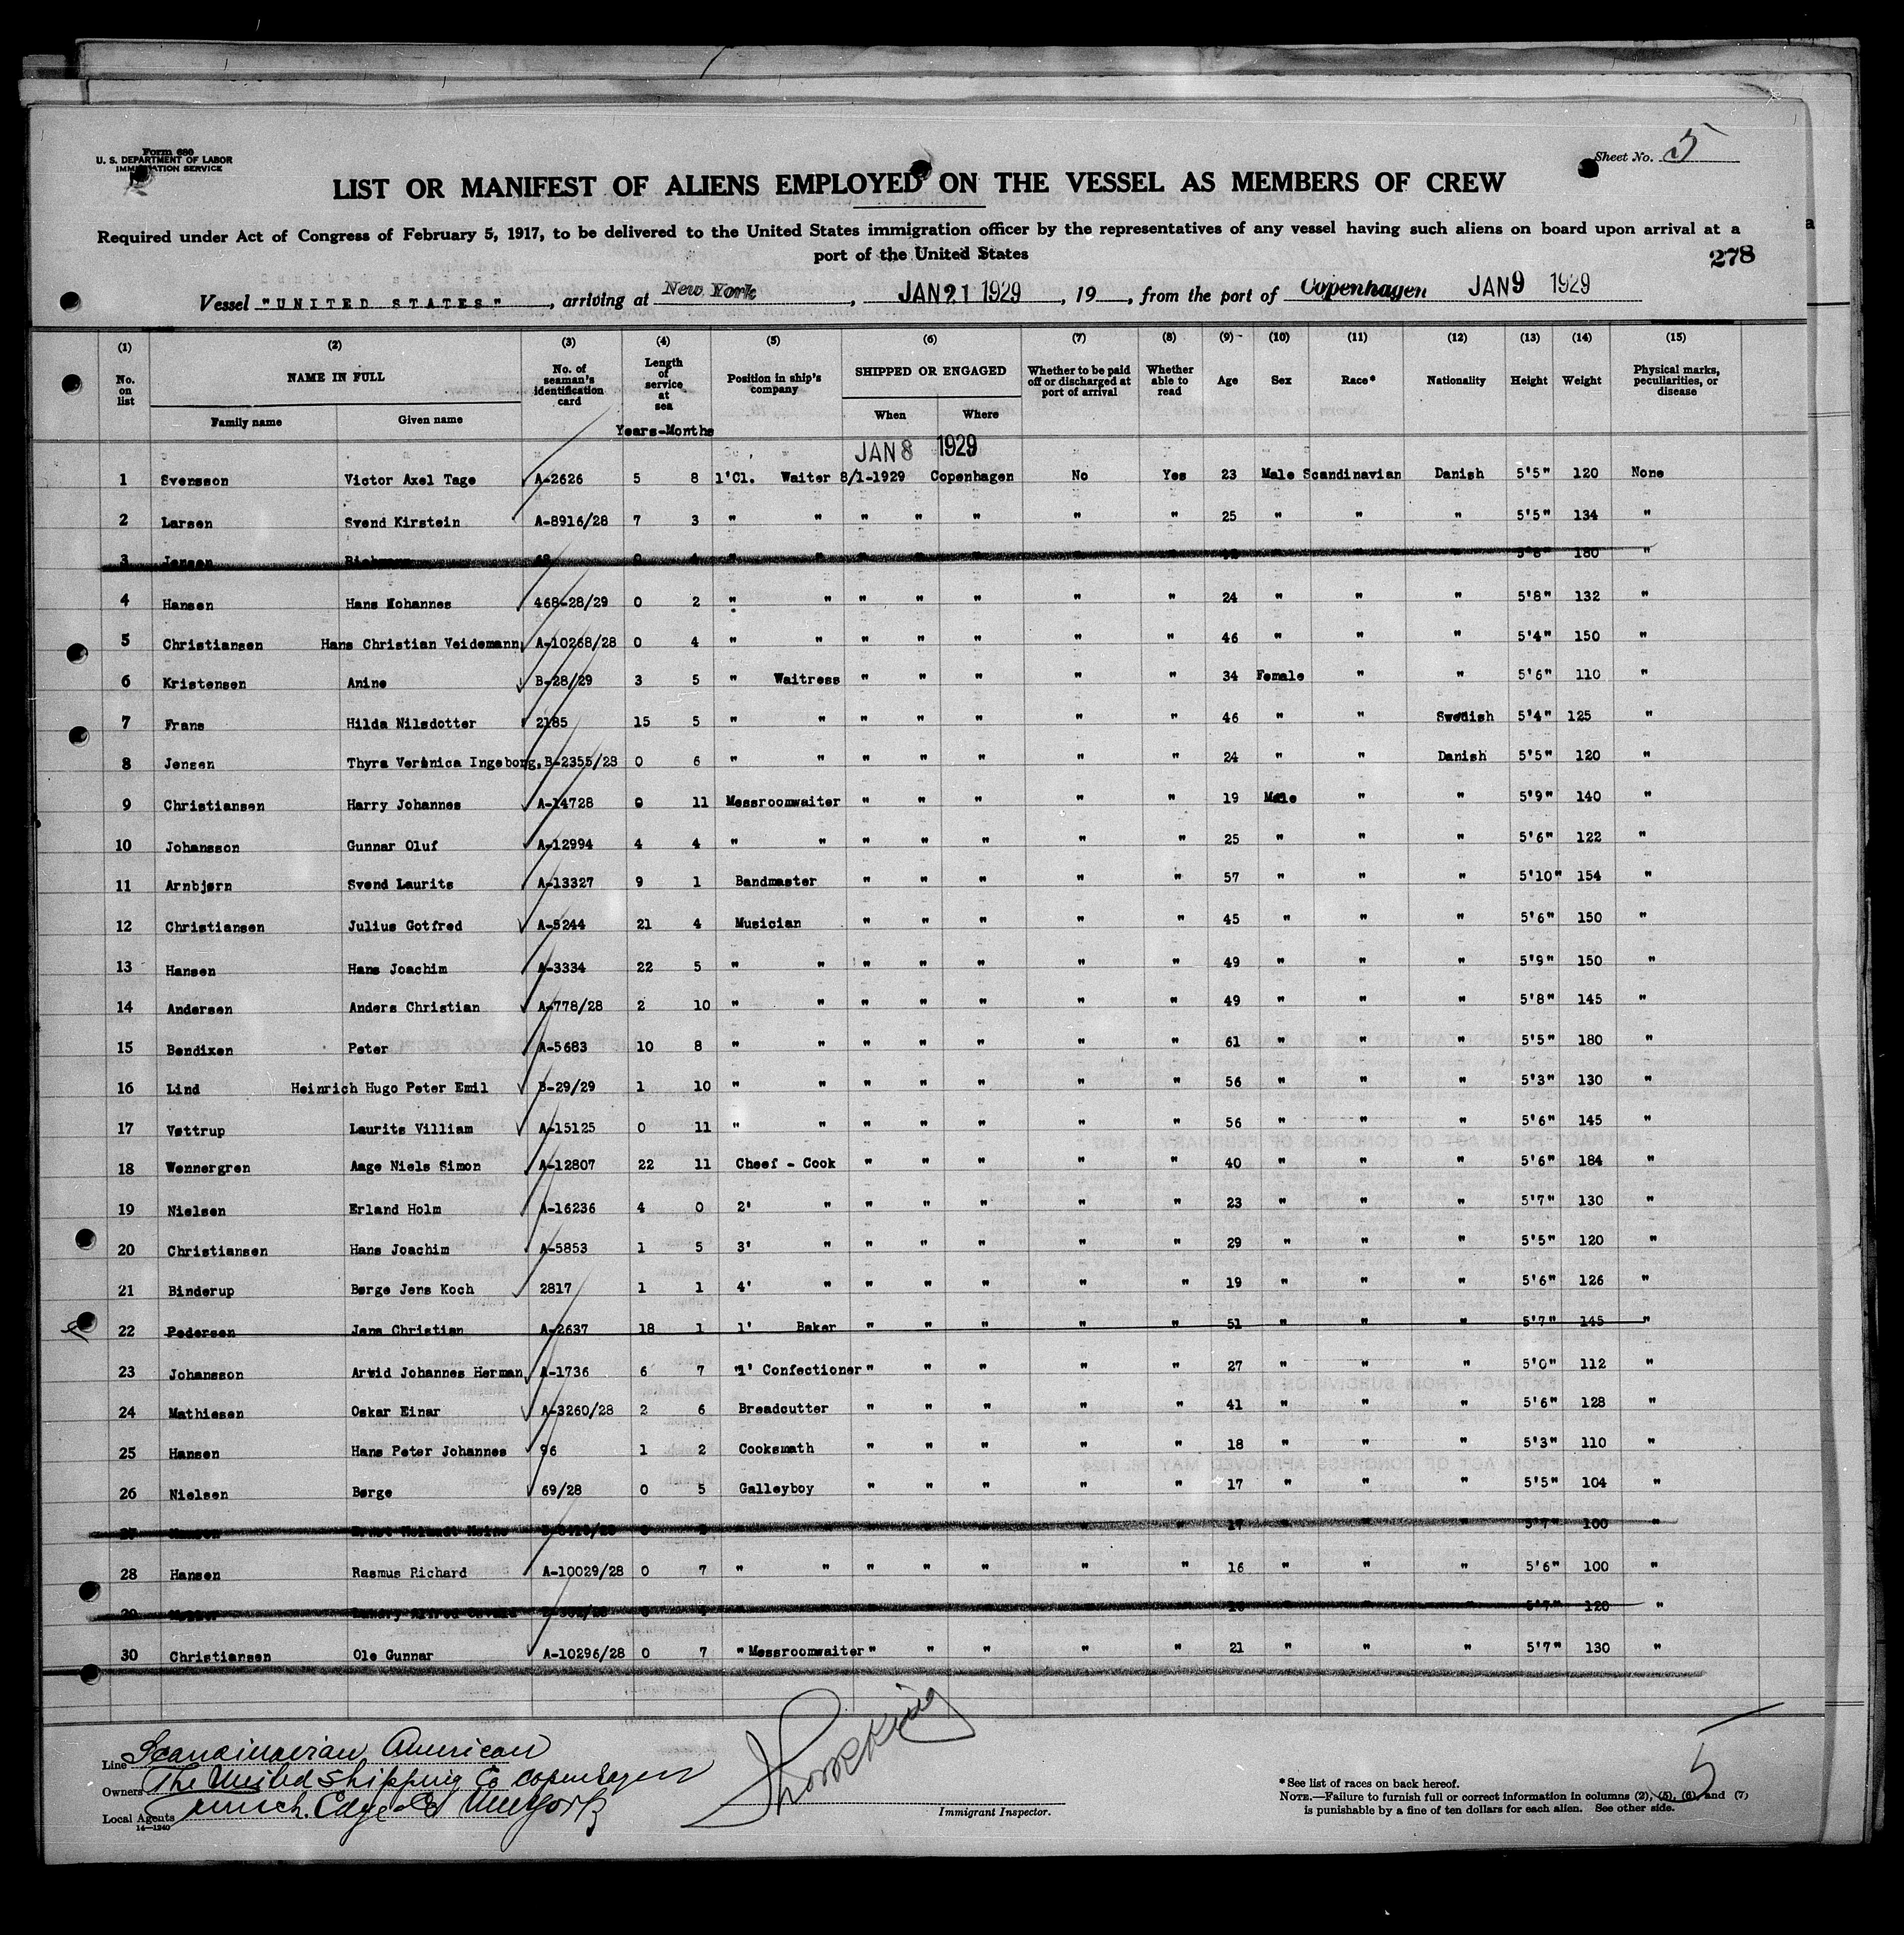 Form 680
U. S. DEPARTMENT OF LABOR
IMMIGRATION SERVICE
Sheet No. 5
LIST OR MANIFEST OF ALIENS EMPLOYED ON THE VESSEL AS MEMBERS OF CREW
Required under Act of Congress of February 5, 1917, to be delivered to the United States immigration officer by the representatives of any vessel having such aliens on board upon arrival at a
port of the United States
278
Vessel "UNITED STATES", arriving at New York, JAN 21 1929, 19, from the port of Copenhagen JAN 9 1929
(1) (2) (3) (4) (5) (6) (7) (8) (9) (10) (11) (12) (13) (14) (15)
No. on list NAME IN FULL Family name Given name No. of seaman's identification card Length of service at sea Years-Months Position in ship's company SHIPPED OR ENGAGED When Where Whether to be paid off or discharged at port of arrival Whether able to read Age Sex Race* Nationality Height Weight Physical marks, peculiarities, or disease
JAN 8 1929
1 Svensson Victor Axel Tage A-2626 5 8 1'Cl. Waiter 8/1-1929 Copenhagen No Yes 23 Male Scandinavian Danish 5'5" 120 None
2 Larsen Svend Kirstein A-8916/28 7 3 " " " " " " " 25 " " " 5'5" 134 "
3 Jensen " " " " " " " " " 5'8" 180 "
4 Hansen Hans Mohannes 468-28/29 0 2 " " " " " " " 24 " " " 5'8" 132 "
5 Christiansen Hans Christian Veidemann A-10268/28 0 4 " " " " " " " 46 " " " 5'4" 150 "
6 Kristensen Anine B-28/29 3 5 " Waitress " " " " " 34 Female " " 5'6" 110 "
7 Frans Hilda Nilsdotter 2185 15 5 " " " " " " " 46 " " Swedish 5'4" 125 "
8 Jensen Thyra Verinica Ingeborg. B-2355/28 0 6 " " " " " " " 24 " " Danish 5'5" 120 "
9 Christiansen Harry Johannes A-14728 0 11 Messroomwaiter " " " " " 19 Male " " 5'9" 140 "
10 Johansson Gunnar Oluf A-12994 4 4 " " " " " " " 25 " " " 5'6" 122 "
11 Arnbjørn Svend Laurits A-13327 9 1 Bandmaster " " " " " 57 " " " 5'10" 154 "
12 Christiansen Julius Gotfred A-5244 21 4 Musician " " " " " 45 " " " 5'6" 150 "
13 Hansen Hans Joachim A-3334 22 5 " " " " " " " 49 " " " 5'9" 150 "
14 Andersen Anders Christian A-778/28 2 10 " " " " " " " 49 " " " 5'8" 145 "
15 Bendixen Peter A-5683 10 8 " " " " " " " 61 " " " 5'5" 180 "
16 Lind Heinrich Hugo Peter Emil B-29/29 1 10 " " " " " " " 56 " " " 5'3" 130 "
17 Vettrup Laurits Villiam A-15125 0 11 " " " " " " " 56 " " " 5'6" 145 "
18 Wennergren Aage Niels Simon A-12807 22 11 Cheef - Cook " " " " " 40 " " " 5'6" 184 "
19 Nielsen Erland Holm A-16236 4 0 2' " " " " " " 23 " " " 5'7" 130 "
20 Christiansen Hans Joachim A-5853 1 5 3' " " " " " " 29 " " " 5'5" 120 "
21 Binderup Børge Jens Koch 2817 1 1 4' " " " " " " 19 " " " 5'6" 126 "
22 Pedersen Jens Christian A-2637 18 1 1' Baker " " " " " 51 " " " 5'7" 145 "
23 Johansson Arwid Johannes Herman A-1736 6 7 "1' Confectioner " " " " " 27 " " " 5'0" 112 "
24 Mathiesen Oskar Einar A-3260/28 2 6 Breadcutter " " " " " 41 " " " 5'6" 128 "
25 Hansen Hans Peter Johannes 96 1 2 Cooksmath " " " " " 18 " " " 5'3" 110 "
26 Nielsen Børge 69/28 0 5 Galleyboy " " " " " 17 " " " 5'5" 104 "
27 Hansen " " " 17 " " " 5'7" 100 "
28 Hansen Rasmus Richard A-10029/28 0 7 " " " " " " " 16 " " " 5'6" 100 "
29 5'7" 120 "
30 Christiansen Ole Gunnar A-10296/28 0 7 " Messroomwaiter " " " " " 21 " " " 5'7" 130 "
Line Scandinavian American
Owners The United Shipping Co Copenhagen
Local Agents
14—1240
Immigrant Inspector.
5
* See list of races on back hereof.
NOTE.—Failure to furnish full or correct information in columns (2), (5), (6), and (7)
is punishable by a fine of ten dollars for each alien. See other side.